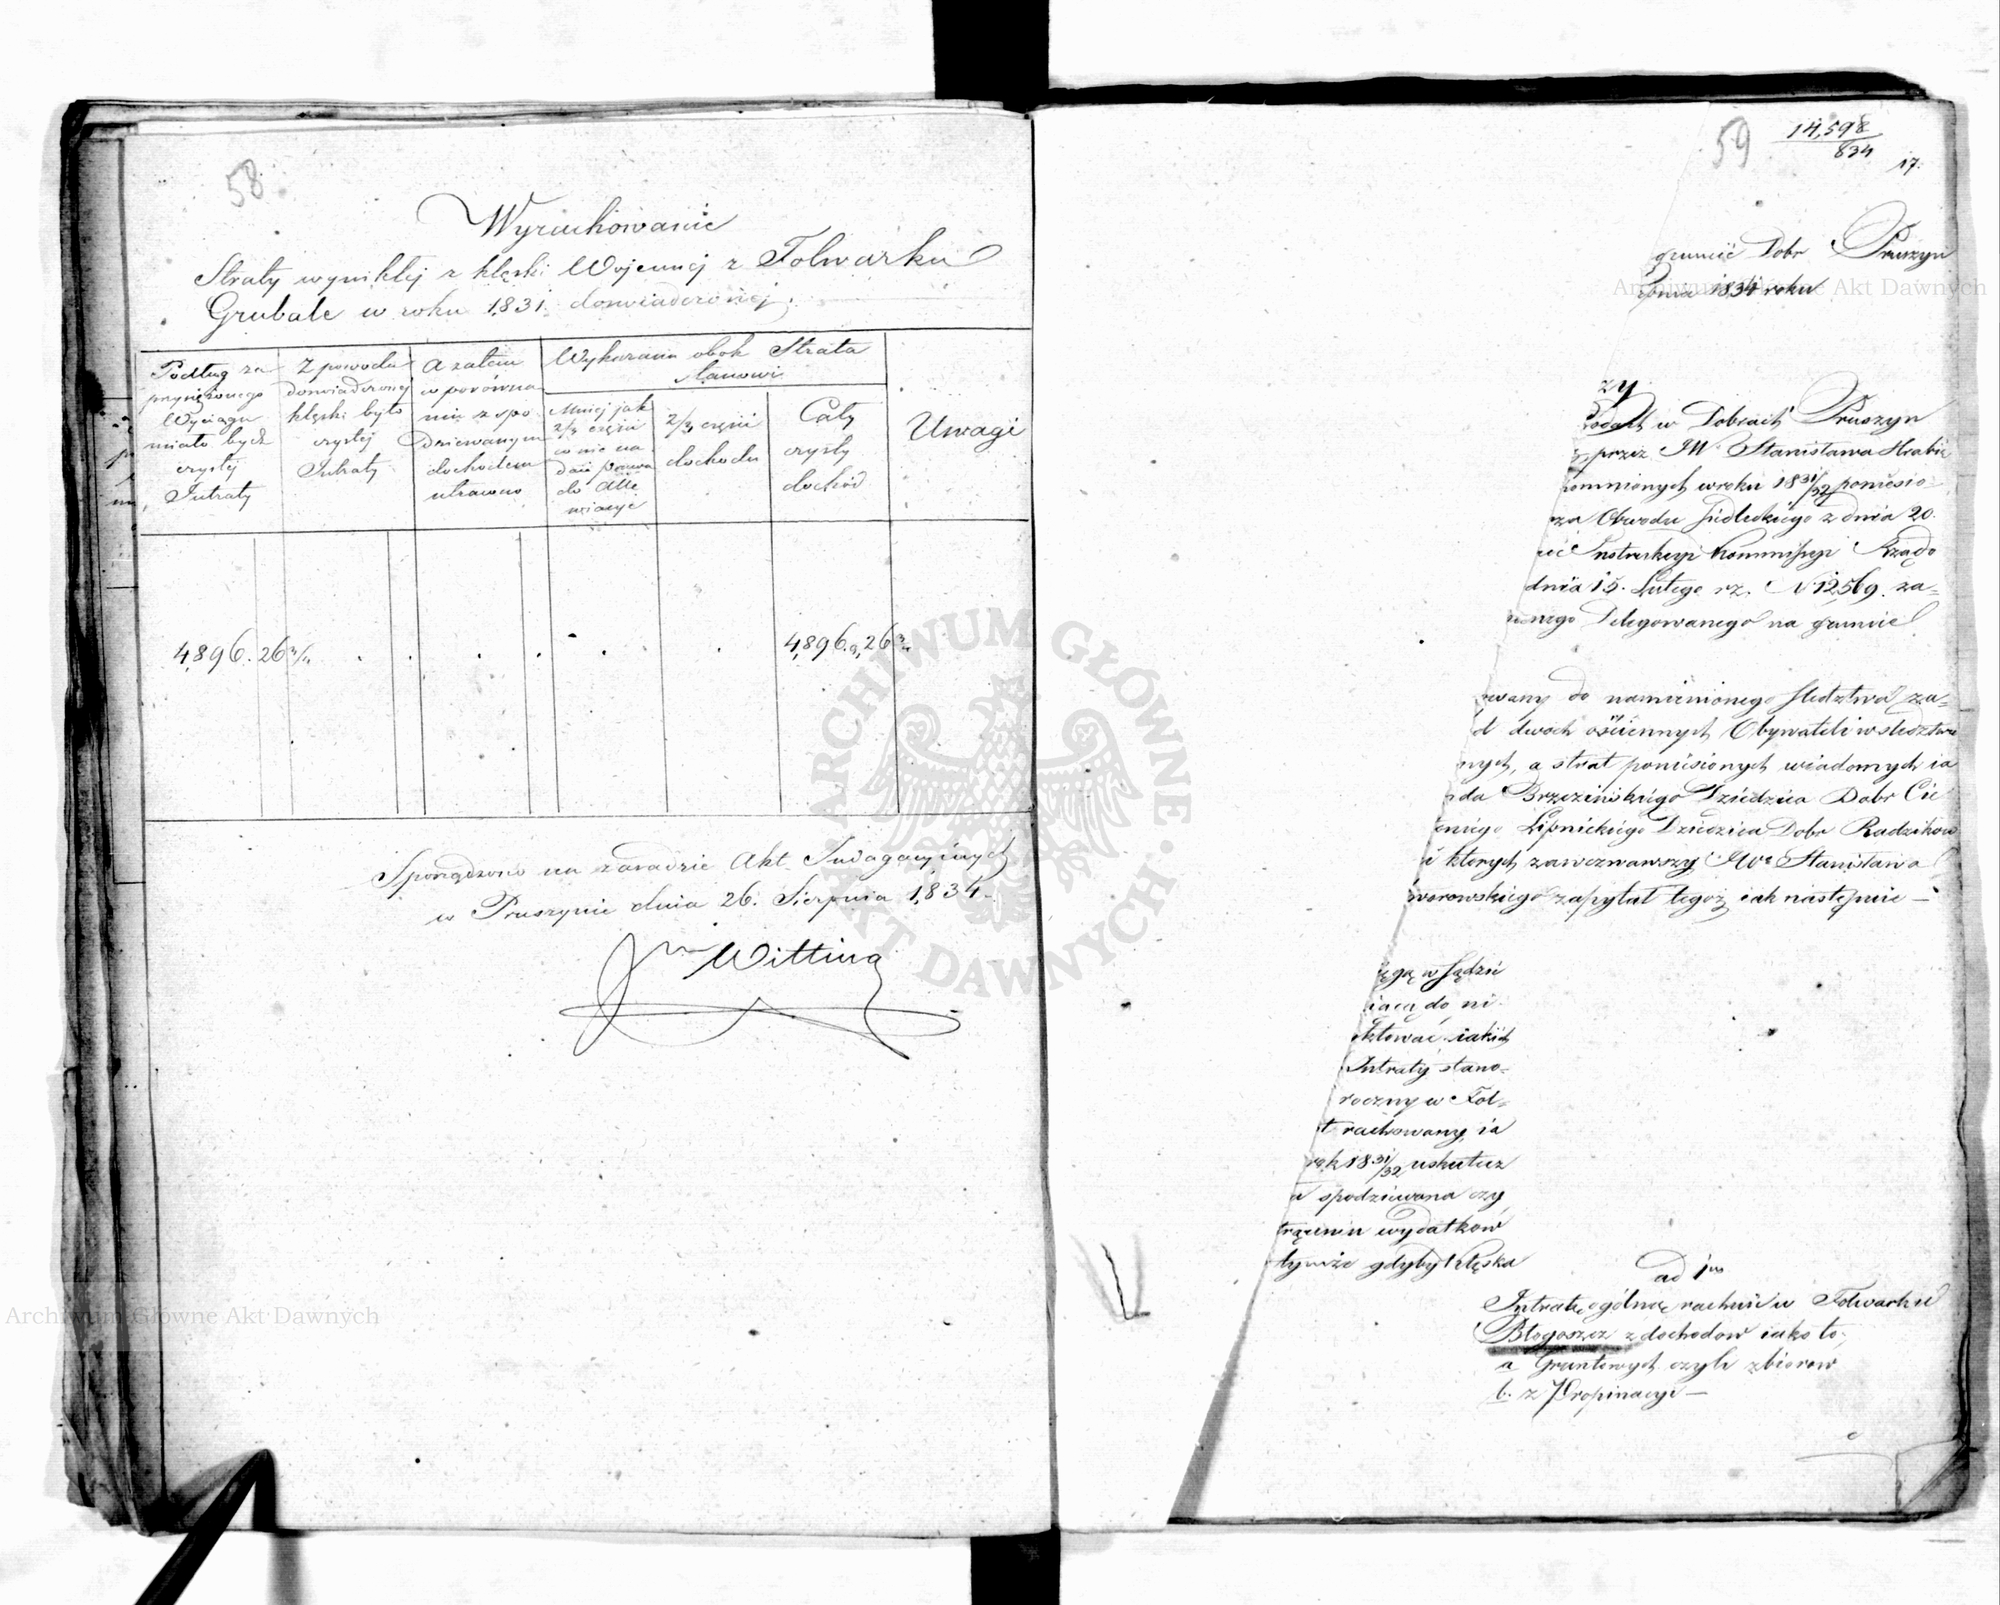 58
Wyrachowanie
Straty wynikłej z klęski Wojennej z Folwarku
Grubale w roku 1831 doswiadczonej.
Podług za
przysiężonego
Wyciągu
miało bydz
czystej
Intraty
Z powodu
doswiadczonej
klęski było
czystej
Intraty
A zatem
w porówna
niu z spo
dziewanym
dochodem
utracono
Wykazana obok Strata
stanowi
Mniej jak
2/3 części
co nie na
daie prawa
do Alle
wiacyi
2/3 części
dochodu
Cały
czysty
dochód
Uwagi
4,896. 26
4,896. 26
Sporządzono na zasadzie Akt Indagacyinych
w Pruszynie dnia 26. Sierpnia 1834.
Witting
59
14,598
834
17.
gruncie Dobr Pruszyn
rpnia 1834 roku
zy
rodach w Dobrach Pruszyn
przez JW. Stanisława Hrabie
omnionych w roku 1831/32 poniesio
za Obwodu Siedleckiego z dnia 20.
Instrukcyi Kommissyi Rządo
dnia 15. Lutego rz. N 12,569. za=
nego Delegowanego na gruncie
wany do namienionego sledztwa za=
d dwoch ościennych Obywateli w sledztwie
nych, a strat poniesionych wiadomych ia
da Brzezinskiego Dziedzica Dobr Cie
niego Lipnickiego Dziedzica Dobr Radzikow
i ktorych zawezwawszy JWo Stanisława
worowskiego zapytał tegoż iak nastepuie —
ęgą w Sądzie
iącą do ni
ktować iakich
Intraty stano=
roczny w Fol=
t rachowany ia
rok 1831/32 uskutecz
a spodziewana czy
trąceniu wydatkow
tymże gdyby klęska
ad 1mo
Intratę ogólną rachuie w Folwarku
Błogoszcz z dochodow iako to,
a Gruntowych czyli zbiorow
b. z Propinacyi —
ARCHIWUM GŁÓWNE AKT DAWNYCH
Archiwum Główne Akt Dawnych
Archiwum Główne Akt Dawnych